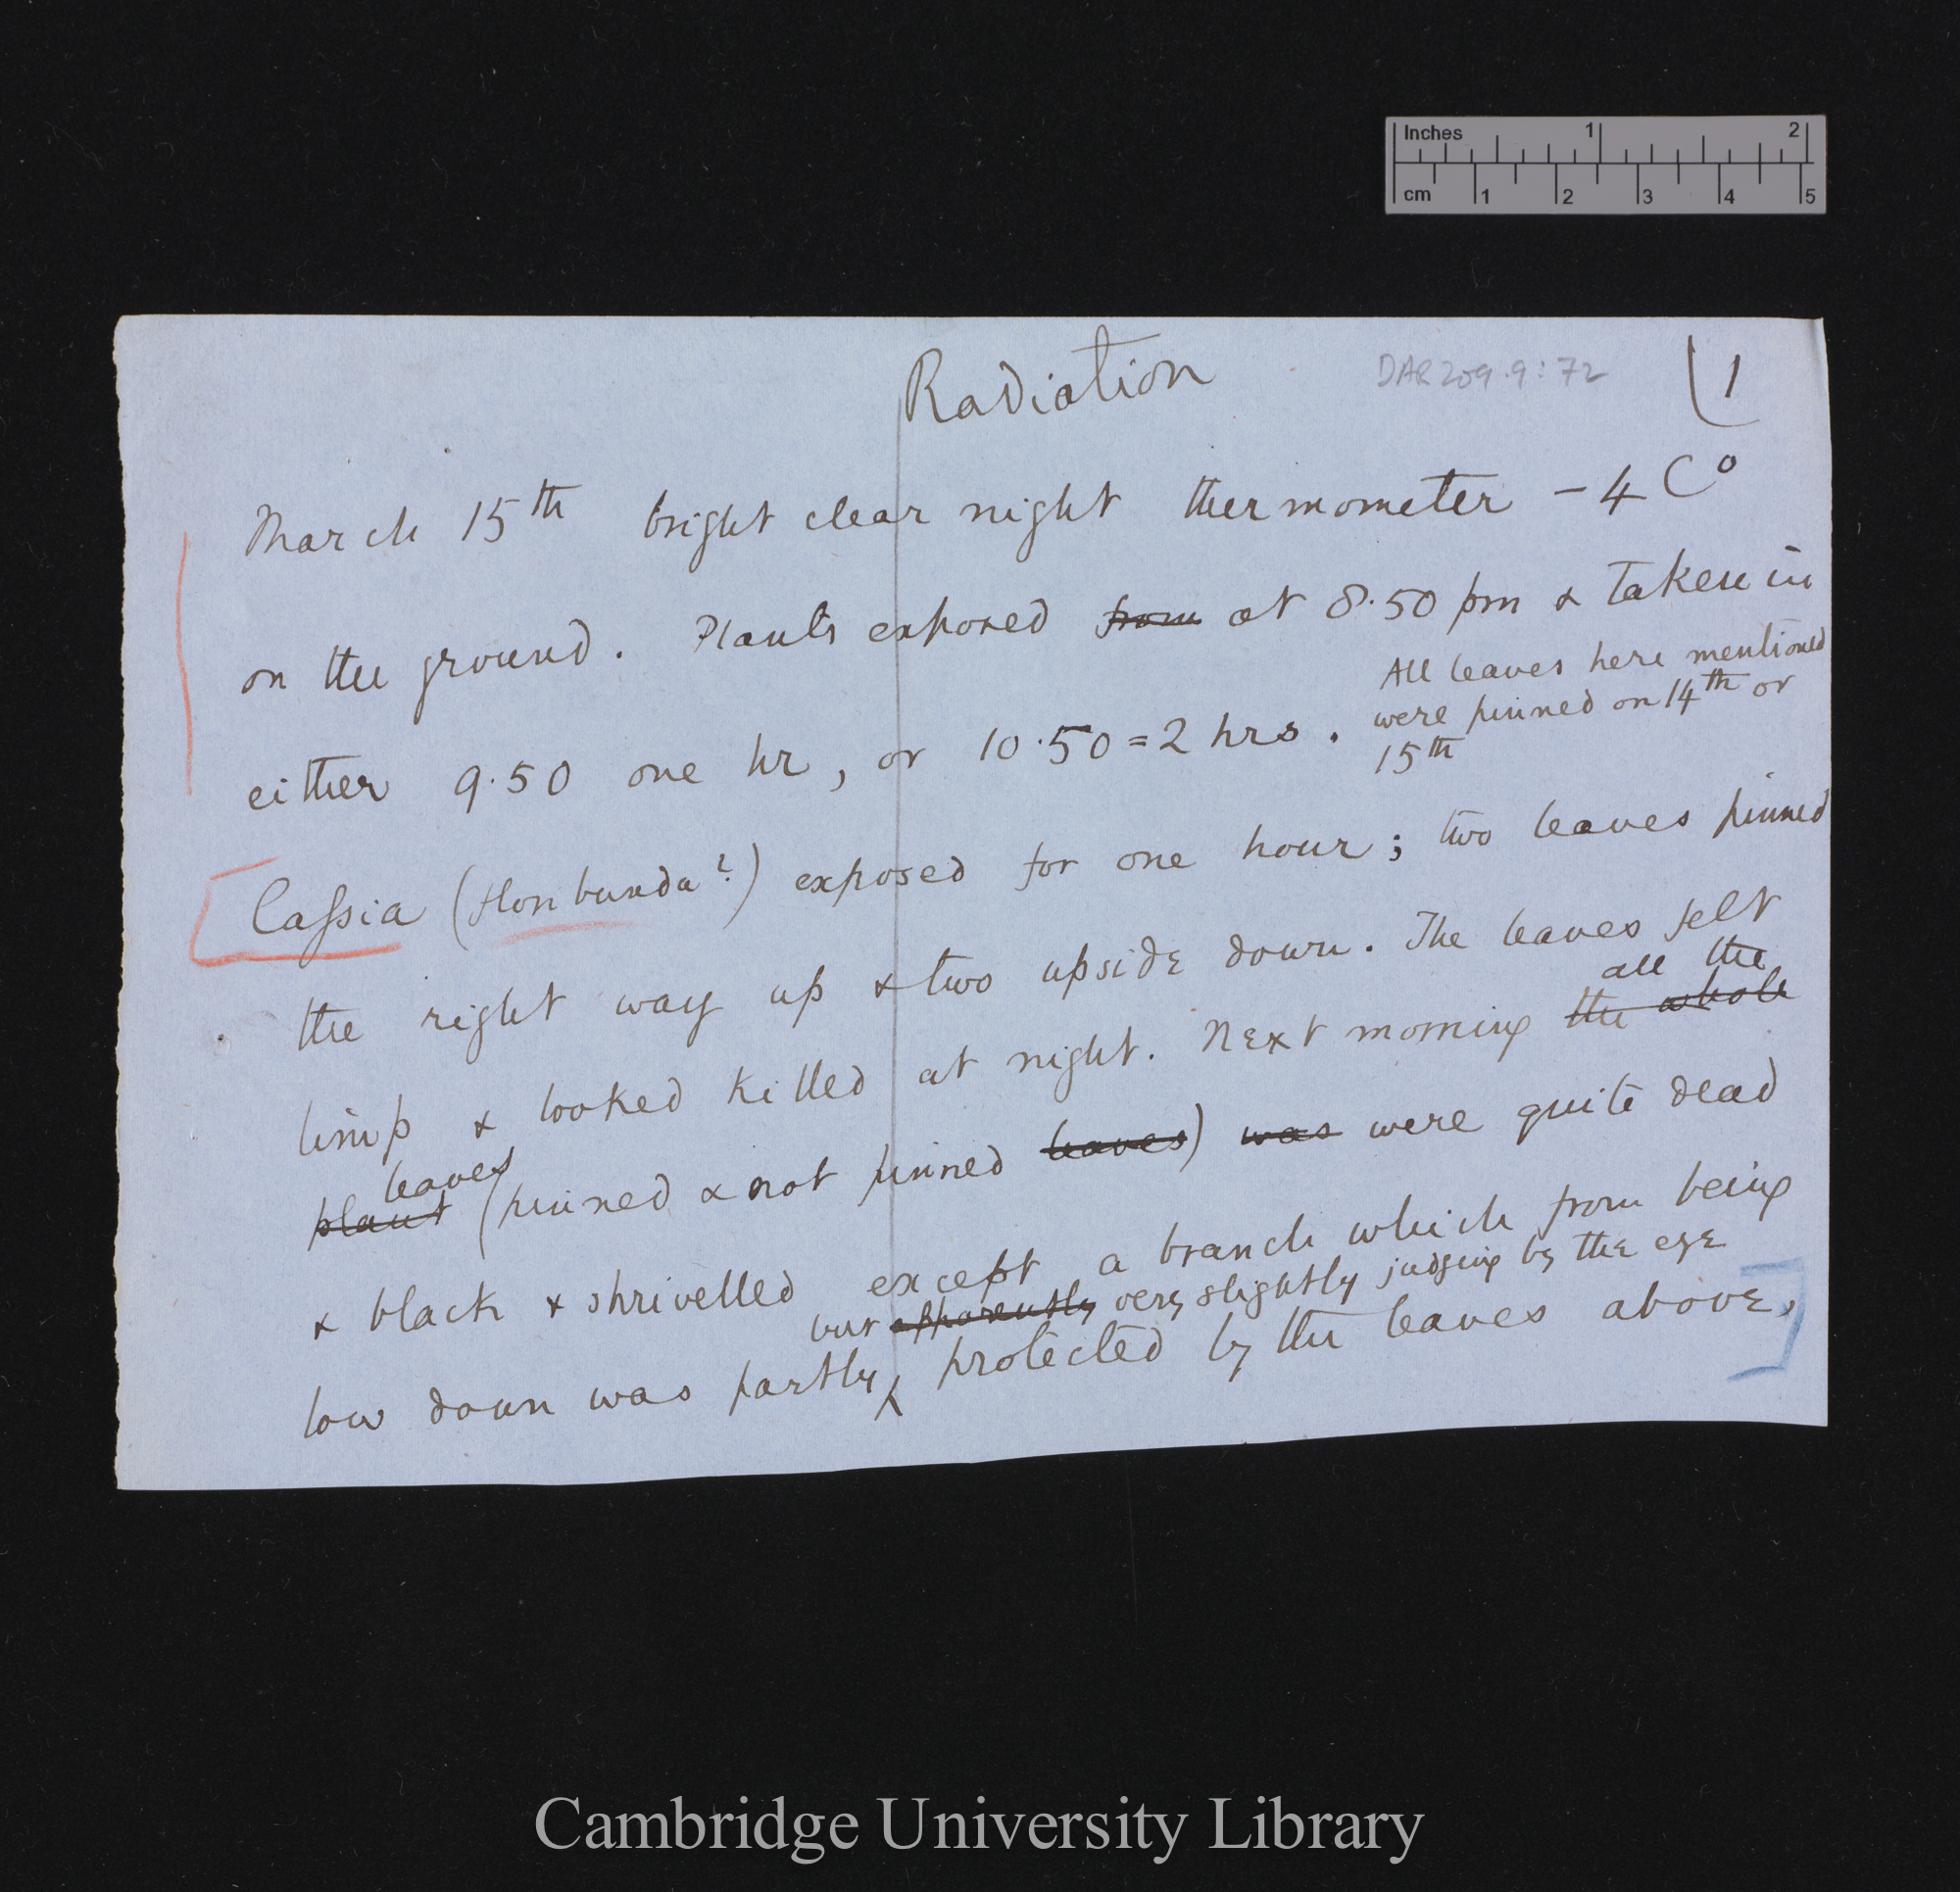 Inches 1 2
cm 1 2 3 4 5
Radiation
DAR 209.9:72
1
March 15th bright clear night thermometer - 4 C°
on the ground. Plants exposed from at 8.50 pm & taken in
either 9.50 one hr, or 10.50 = 2 hrs.
All leaves here mentioned
were pinned on 14th or
15th
Cassia (floribunda?) exposed for one hour; two leaves pinned
the right way up & two upside down. The leaves felt
all the
limp & looked killed at night. Next morning the whole
leaves
plant (pinned & not pinned leaves) was were quite dead
& black & shrivelled except a branch which from being
but apparently very slightly judging by the eye
low down was partly protected by the leaves above.
Cambridge University Library